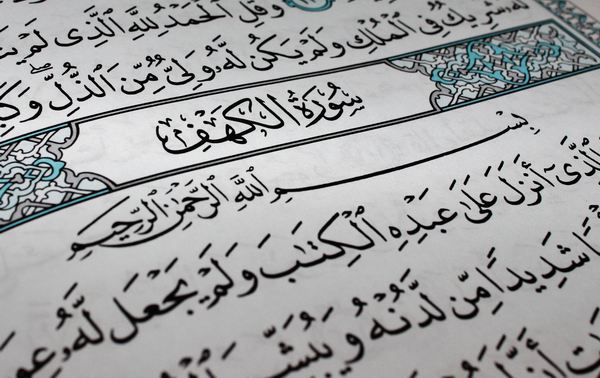 وَقُلِ ٱلۡحَمۡدُ لِلَّهِ ٱلَّذِي لَمۡ
لَّهُۥ شَرِيكٞ فِي ٱلۡمُلۡكِ وَلَمۡ يَكُن لَّهُۥ وَلِيّٞ مِّنَ ٱلذُّلِّۖ
سُورَةُ الكَهْفِ
بِسۡمِ ٱللَّهِ ٱلرَّحۡمَٰنِ ٱلرَّحِيمِ
ٱلَّذِيٓ أَنزَلَ عَلَىٰ عَبۡدِهِ ٱلۡكِتَٰبَ وَلَمۡ يَجۡعَل لَّهُۥ
شَدِيدٗا مِّن لَّدُنۡهُ